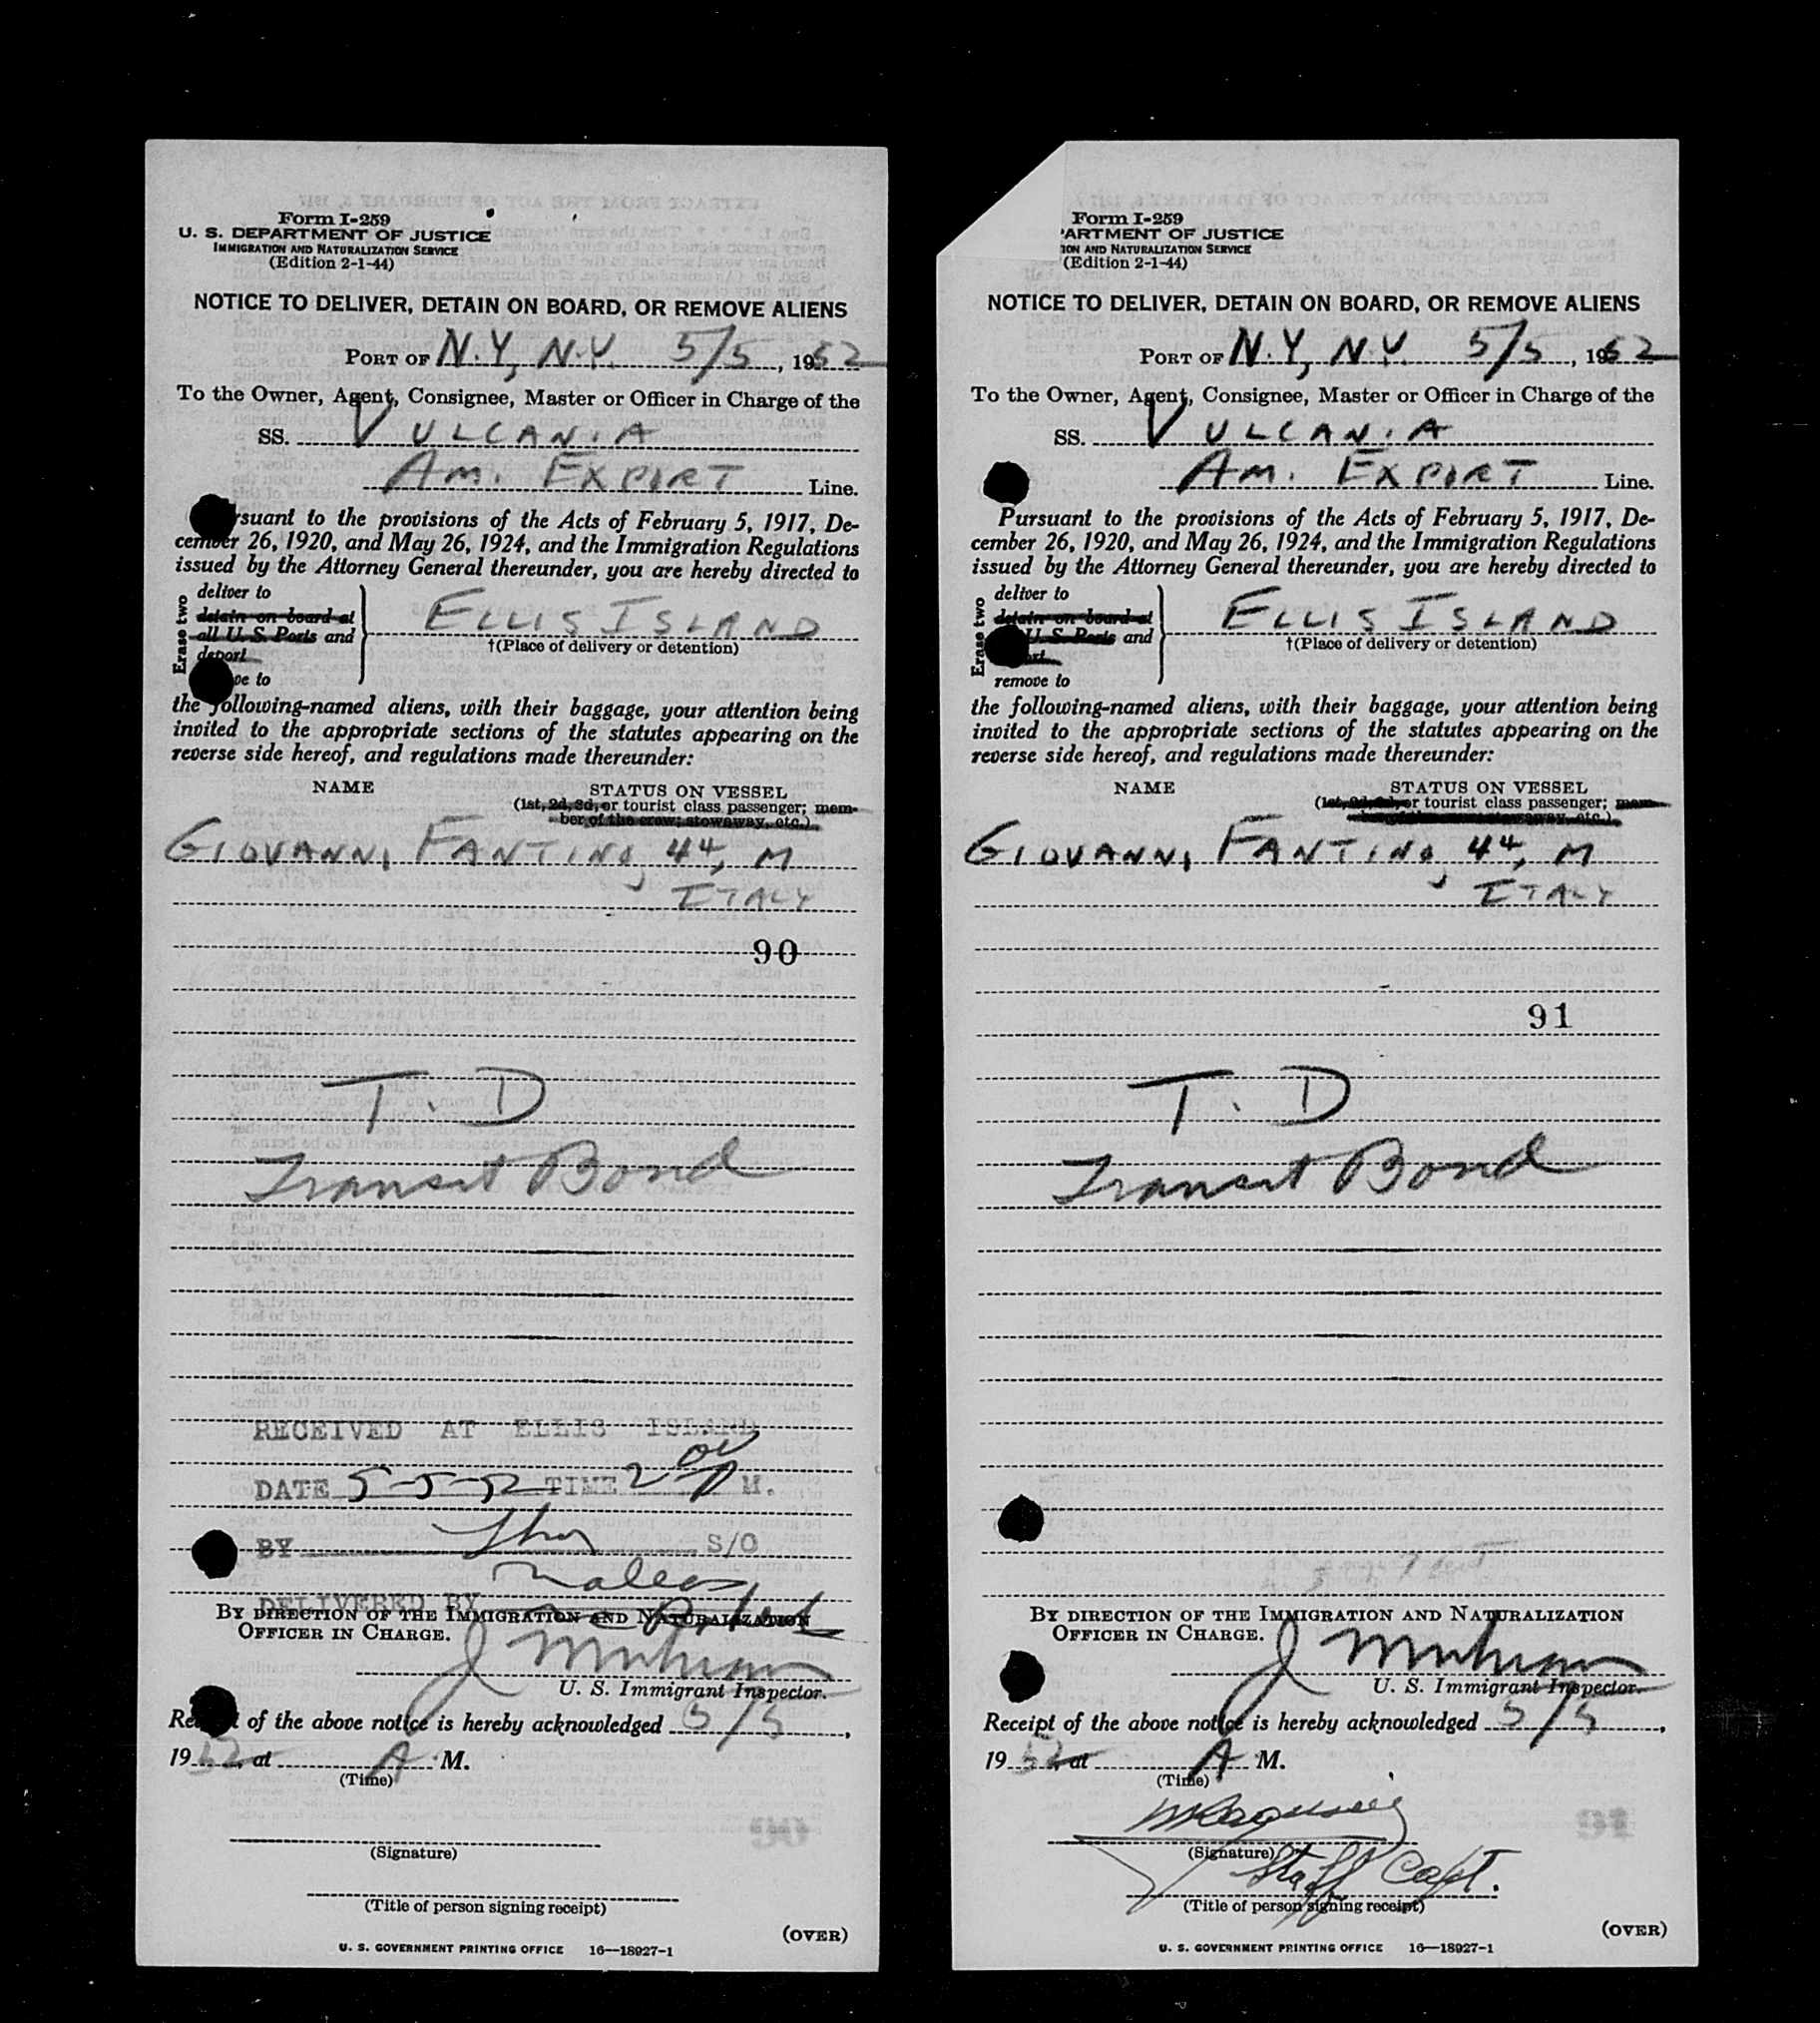 Form I-259
U. S. DEPARTMENT OF JUSTICE
IMMIGRATION AND NATURALIZATION SERVICE
(Edition 2-1-44)
NOTICE TO DELIVER, DETAIN ON BOARD, OR REMOVE ALIENS
PORT OF N.Y, N.Y. 5/5, 1952
To the Owner, Agent, Consignee, Master or Officer in Charge of the
SS. VULCANIA
AM. EXPORT Line.
rsuant to the provisions of the Acts of February 5, 1917, De-
cember 26, 1920, and May 26, 1924, and the Immigration Regulations
issued by the Attorney General thereunder, you are hereby directed to
Erase two
deliver to
detain on board at
all U. S. Ports and
deport
ve to
ELLIS ISLAND
†(Place of delivery or detention)
the following-named aliens, with their baggage, your attention being
invited to the appropriate sections of the statutes appearing on the
reverse side hereof, and regulations made thereunder:
NAME STATUS ON VESSEL
(1st, 2d, 3d, or tourist class passenger; mem-
ber of the crew; stowaway, etc.)
GIOVANNI FANTINO, 44, M
ITALY
90
T. D
Transit Bond
RECEIVED AT ELLIS ISLAND
DATE 5-5-52 TIME 2 00 P M.
BY S/O
DELIVERED BY
BY DIRECTION OF THE IMMIGRATION AND NATURALIZATION
OFFICER IN CHARGE.
U. S. Immigrant Inspector.
Re t of the above notice is hereby acknowledged 5/5,
1952, at A M.
(Time)
(Signature)
(Title of person signing receipt)
(OVER)
U. S. GOVERNMENT PRINTING OFFICE 16—18927-1
Form I-259
ARTMENT OF JUSTICE
ION AND NATURALIZATION SERVICE
(Edition 2-1-44)
NOTICE TO DELIVER, DETAIN ON BOARD, OR REMOVE ALIENS
PORT OF N.Y, N.Y. 5/5, 1952
To the Owner, Agent, Consignee, Master or Officer in Charge of the
SS. VULCANIA
AM. EXPORT Line.
Pursuant to the provisions of the Acts of February 5, 1917, De-
cember 26, 1920, and May 26, 1924, and the Immigration Regulations
issued by the Attorney General thereunder, you are hereby directed to
Erase two
deliver to
detain on board at
U. S. Ports and
ort
remove to
ELLIS ISLAND
†(Place of delivery or detention)
the following-named aliens, with their baggage, your attention being
invited to the appropriate sections of the statutes appearing on the
reverse side hereof, and regulations made thereunder:
NAME STATUS ON VESSEL
(1st, 2d, 3d, or tourist class passenger; mem-
ber of the crew; stowaway, etc.)
GIOVANNI FANTINO, 44, M
ITALY
91
T. D
Transit Bond
BY DIRECTION OF THE IMMIGRATION AND NATURALIZATION
OFFICER IN CHARGE.
U. S. Immigrant Inspector.
Receipt of the above notice is hereby acknowledged 5/5,
1952, at A M.
(Time)
(Signature)
Staff Capt.
(Title of person signing receipt)
(OVER)
U. S. GOVERNMENT PRINTING OFFICE 16—18927-1